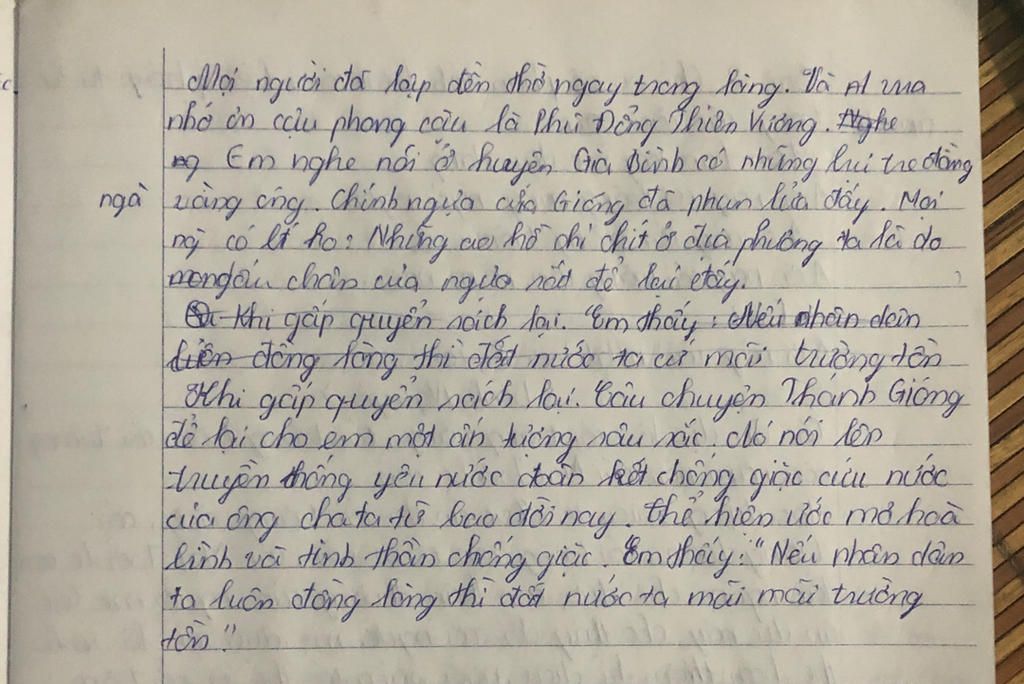 Mọi người đã lập đền thờ ngay trong làng. Và vua
nhớ ơn cậu phong cậu là Phù Đổng Thiên Vương. Nghe
ng Em nghe nói ở huyện Gia Bình có những bụi tre đằng
ngà vàng óng. Chính ngựa của Gióng đã phun lửa đấy. Mọi
ng có lẽ họ: Những ao hồ chi chít ở địa phương ta là do
dấu chân của ngựa sắt để lại đấy.
Khi gấp quyển sách lại. Em thấy: Nếu nhân dân
luôn đồng lòng thì đất nước ta cứ mãi trường tồn
Khi gấp quyển sách lại. Câu chuyện Thánh Gióng
để lại cho em một ấn tượng sâu sắc. Nó nói lên
truyền thống yêu nước đoàn kết chống giặc cứu nước
của ông cha ta từ bao đời nay. Thể hiện ước mơ hoà
bình và tinh thần chống giặc. Em thấy: "Nếu nhân dân
ta luôn đồng lòng thì đất nước ta mãi mãi trường
tồn."